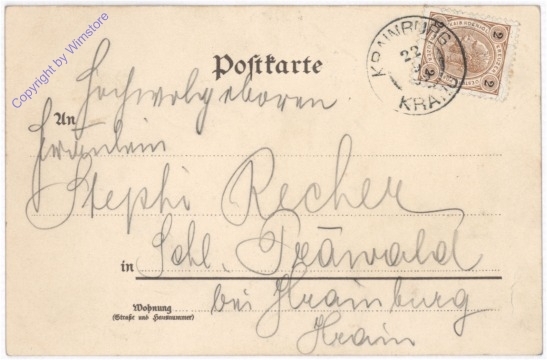 Copyright by Wimstore
Postkarte
KRAINBURG
22
KRAIN
2 2
2 2
Hochwolgeboren
An
Fräulein
Stephi Recher
Schl. Präwald
in
bei Krainburg
Wohnung
(Straße und Hausnummer)
Krain